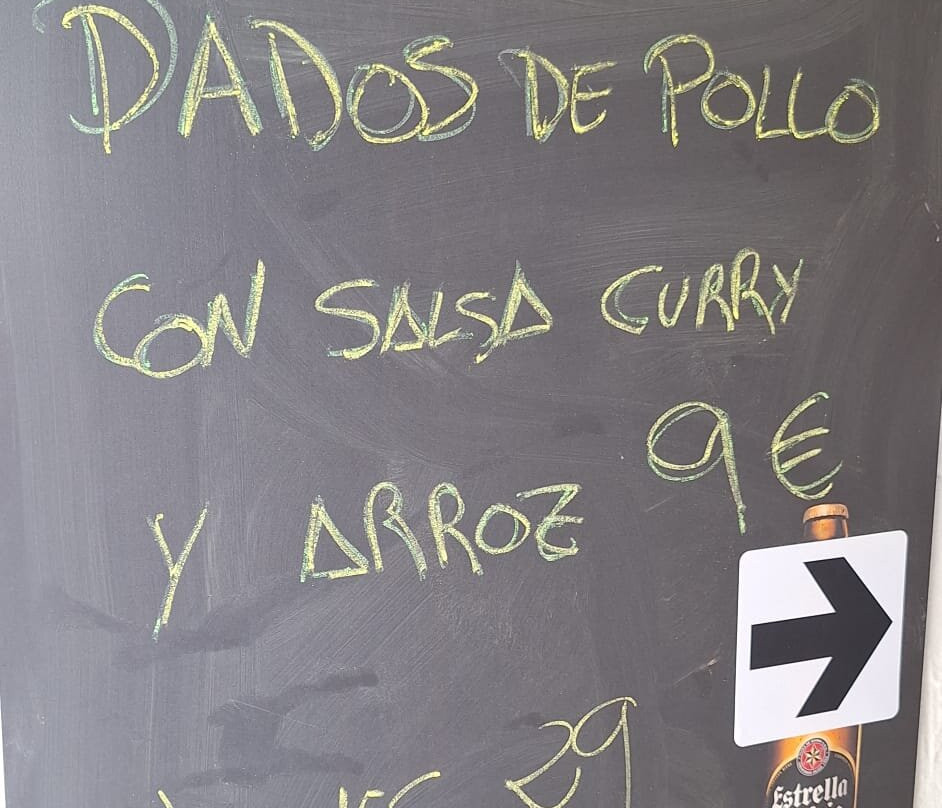 DADOS DE POLLO
CON SALSA CURRY
9€
Y ARROZ
29
Estrella